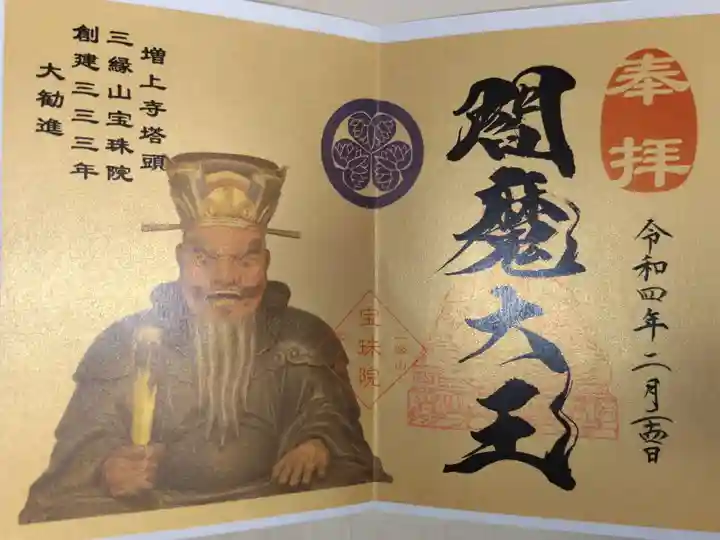 奉拝
閻魔大王
令和四年二月十四日
増上寺塔頭
三縁山宝珠院
創建三三三年
大勧進
宝珠院